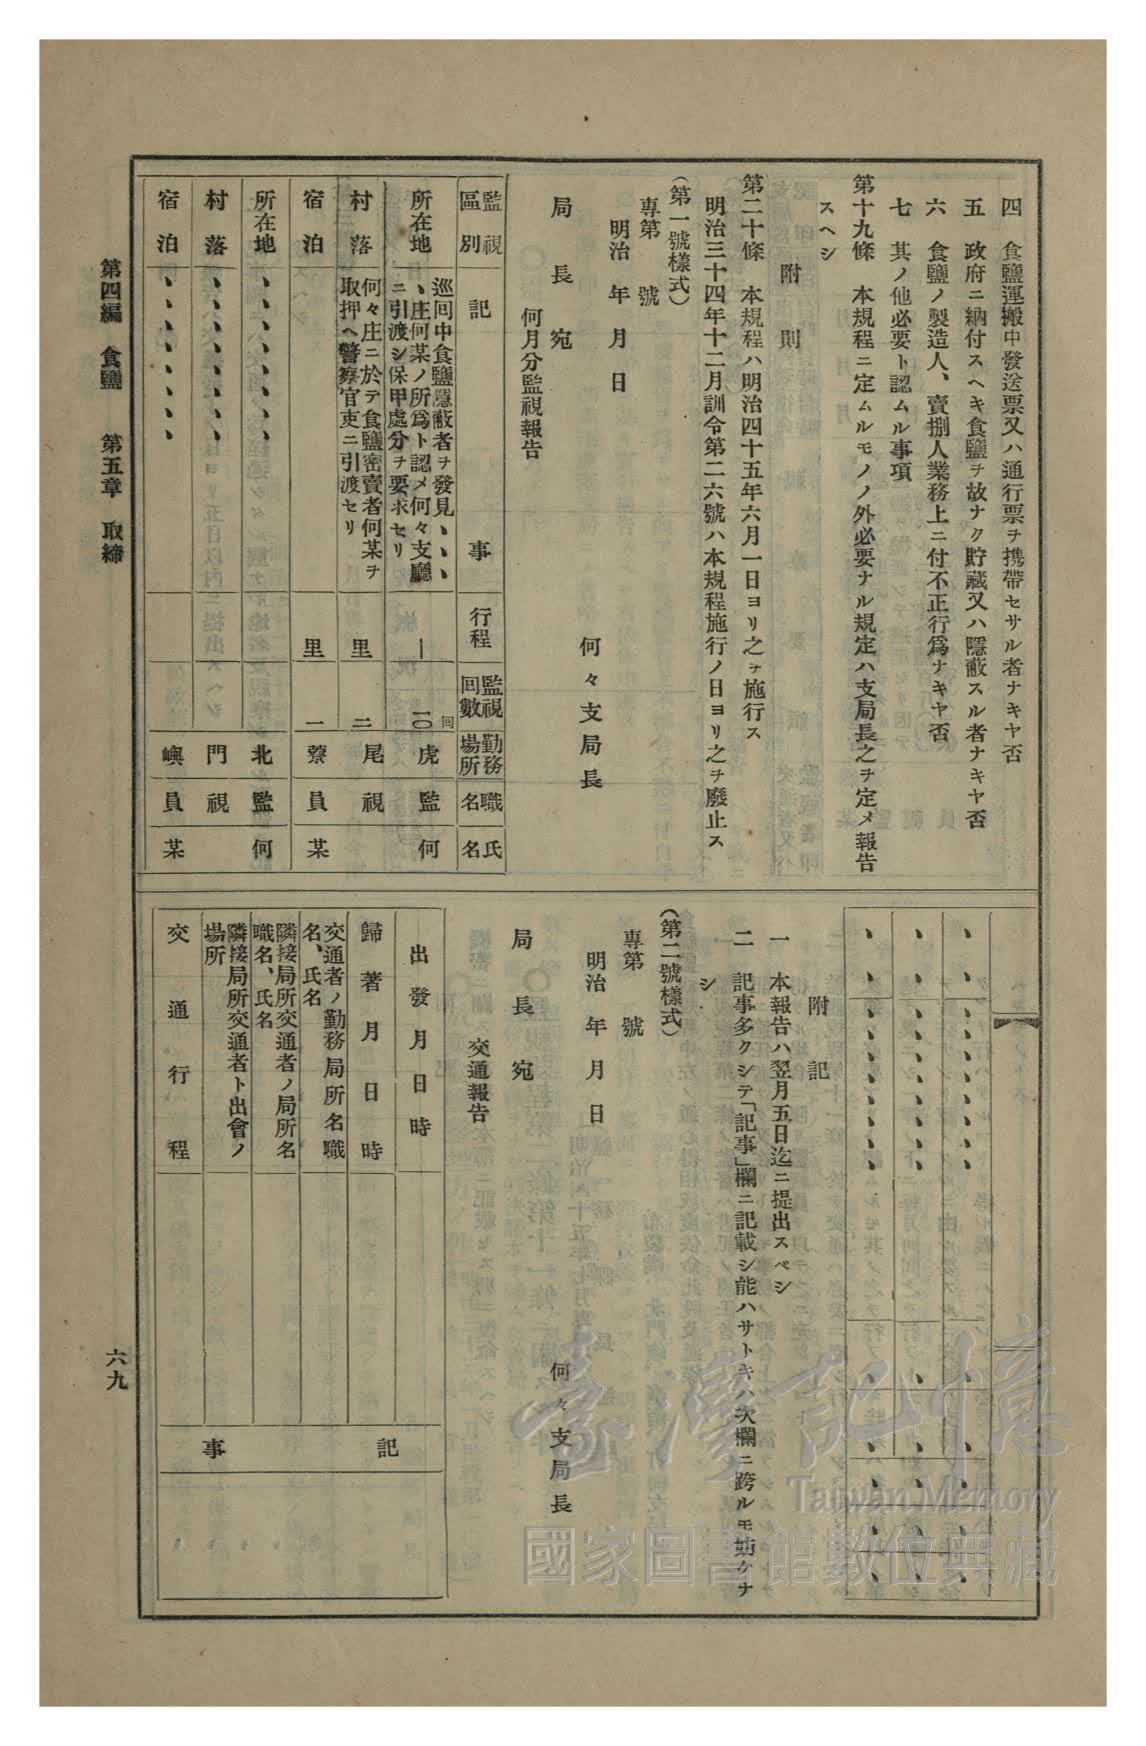 四　食鹽運搬中發送票又ハ通行票ヲ携帶セサル者ナキヤ否
五　政府ニ納付スヘキ食鹽ヲ故ナク貯藏又ハ隱蔽スル者ナキヤ否
六　食鹽ノ製造人、賣捌人業務上ニ付不正行爲ナキヤ否
七　其ノ他必要ト認ムル事項
第十九條　本規程ニ定ムルモノノ外必要ナル規定ハ支局長之ヲ定メ報告
スヘシ
附則
第二十條　本規程ハ明治四十五年六月一日ヨリ之ヲ施行ス
明治三十四年十二月訓令第二六號ハ本規程施行ノ日ヨリ之ヲ廢止ス
（第一號樣式）
專第　號
明治　年　月　日
何々支局長
局長宛
何月分監視報告
監視區別　記事　行程　監視回數　勤務場所　職名　氏名
所在地　巡回中食鹽隱蔽者ヲ發見、、、
、庄何某ノ所爲ト認メ何々支廳
ニ引渡シ保甲處分ヲ要求セリ　—　一〇回　虎　監　何
村落　何々庄ニ於テ食鹽密賣者何某ヲ
取押ヘ警察官吏ニ引渡セリ　里　二　尾　視
宿泊　里　一　藔　員　某
所在地　、、、、、、、、　北　監　何
村落　、、、、、、、、　門　視
宿泊　、、、、、、、、　嶼　員　某
、、、、、、、、、、、、、、
、、、、、、、、、、、、、、
、、、、、、、、、、、、、、
附記
一　本報告ハ翌月五日迄ニ提出スベシ
二　記事多クシテ「記事」欄ニ記載シ能ハサトキハ次欄ニ跨ルモ妨ケナ
シ
（第二號樣式）
專第　號
明治　年　月　日
何々支局長
局長宛
交通報告
出發月日時
歸著月日時
交通者ノ勤務局所名職
名、氏名
隣接局所交通者ノ局所名
職名、氏名
隣接局所交通者ト出會ノ
場所
交通行程
記事
第四編　食鹽　第五章　取締
六九
臺灣記憶
Taiwan Memory
國家圖書館數位典藏